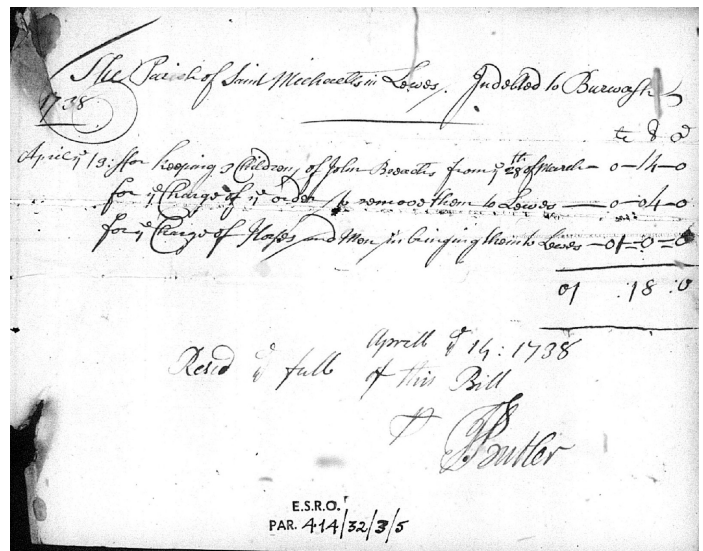 The Parish of Saint Michaells in Lewes, Indebted to Burwash
1738
li s d
April ye 13: ffor keeping 3 Children of John Breads from ye 28th of March — 0 — 14 — 0
for ye Charge of ye order to remove them to Lewes — 0 — 04 — 0
for ye Charge of Horses and Men in bringing them to Lewes — 01 = 0 = 0
01 : 18 : 0
Aprill ye 14 : 1738
Recd ye full of this Bill
P
Butler
E.S.R.O.
PAR. 414/32/3/5